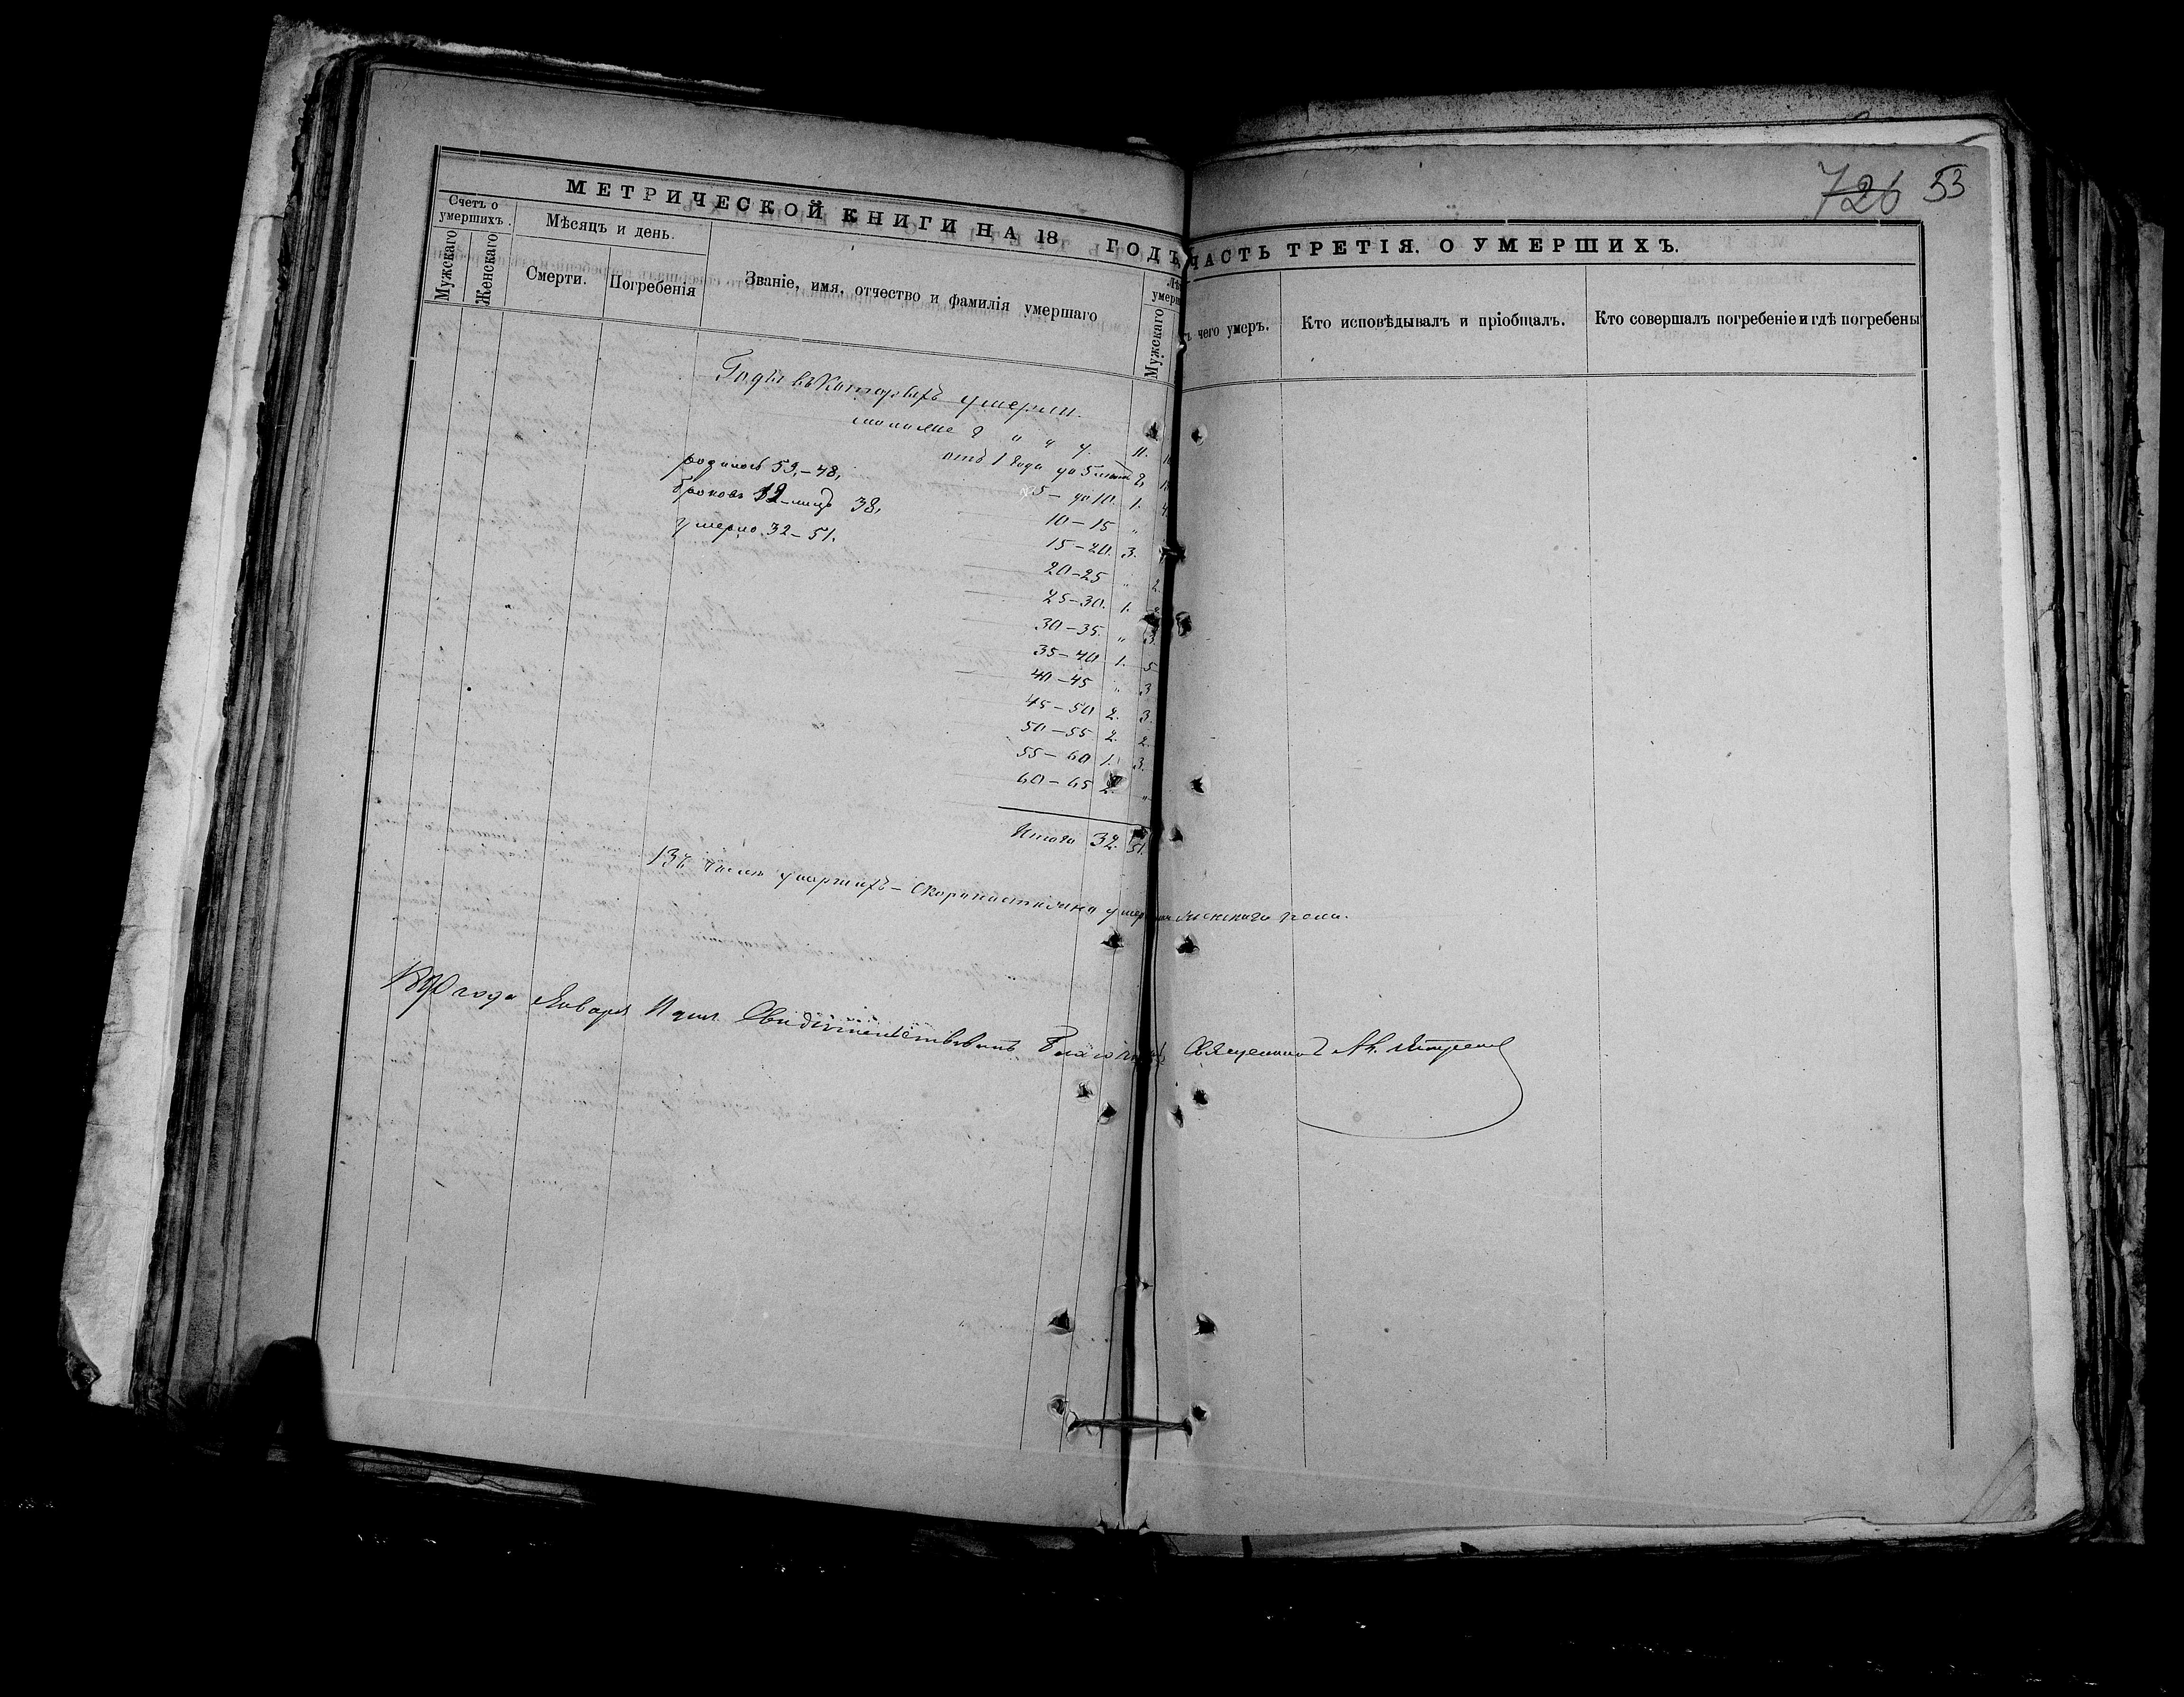 726 53
МЕТРИЧЕСКОЙ КНИГИ НА 18 ГОДЪ
ЧАСТЬ ТРЕТІЯ. О УМЕРШИХЪ.
Счетъ о умершихъ.
Мужскаго
Женскаго
Мѣсяцъ и день.
Смерти.
Погребенія
Званіе, имя, отчество и фамилія умершаго
Мужскаго
чего умеръ.
Кто исповѣдывалъ и пріобщалъ.
Кто совершалъ погребеніе и гдѣ погребены
Годы въ Которыхъ умерли.
11.
отъ 1 года до 5
родилось 53,–48,
5 – до 10. 1. 4.
браковъ 19 38,
10 – 15 „
умерло 32 – 51.
15 – 20. 3.
20 – 25 „ 2.
25 – 30. 1.
30 – 35. „ 3.
35 – 40 1. 5
40 – 45 „ 3
45 – 50 2. 3.
50 – 55 2. 2.
55 – 60 1. 3.
60 – 65 2. „
Итого 32. 51.
числѣ умершихъ – Скоропостижно женскаго пола.
года Января дня Свидѣтельствовалъ Благочинный Священникъ